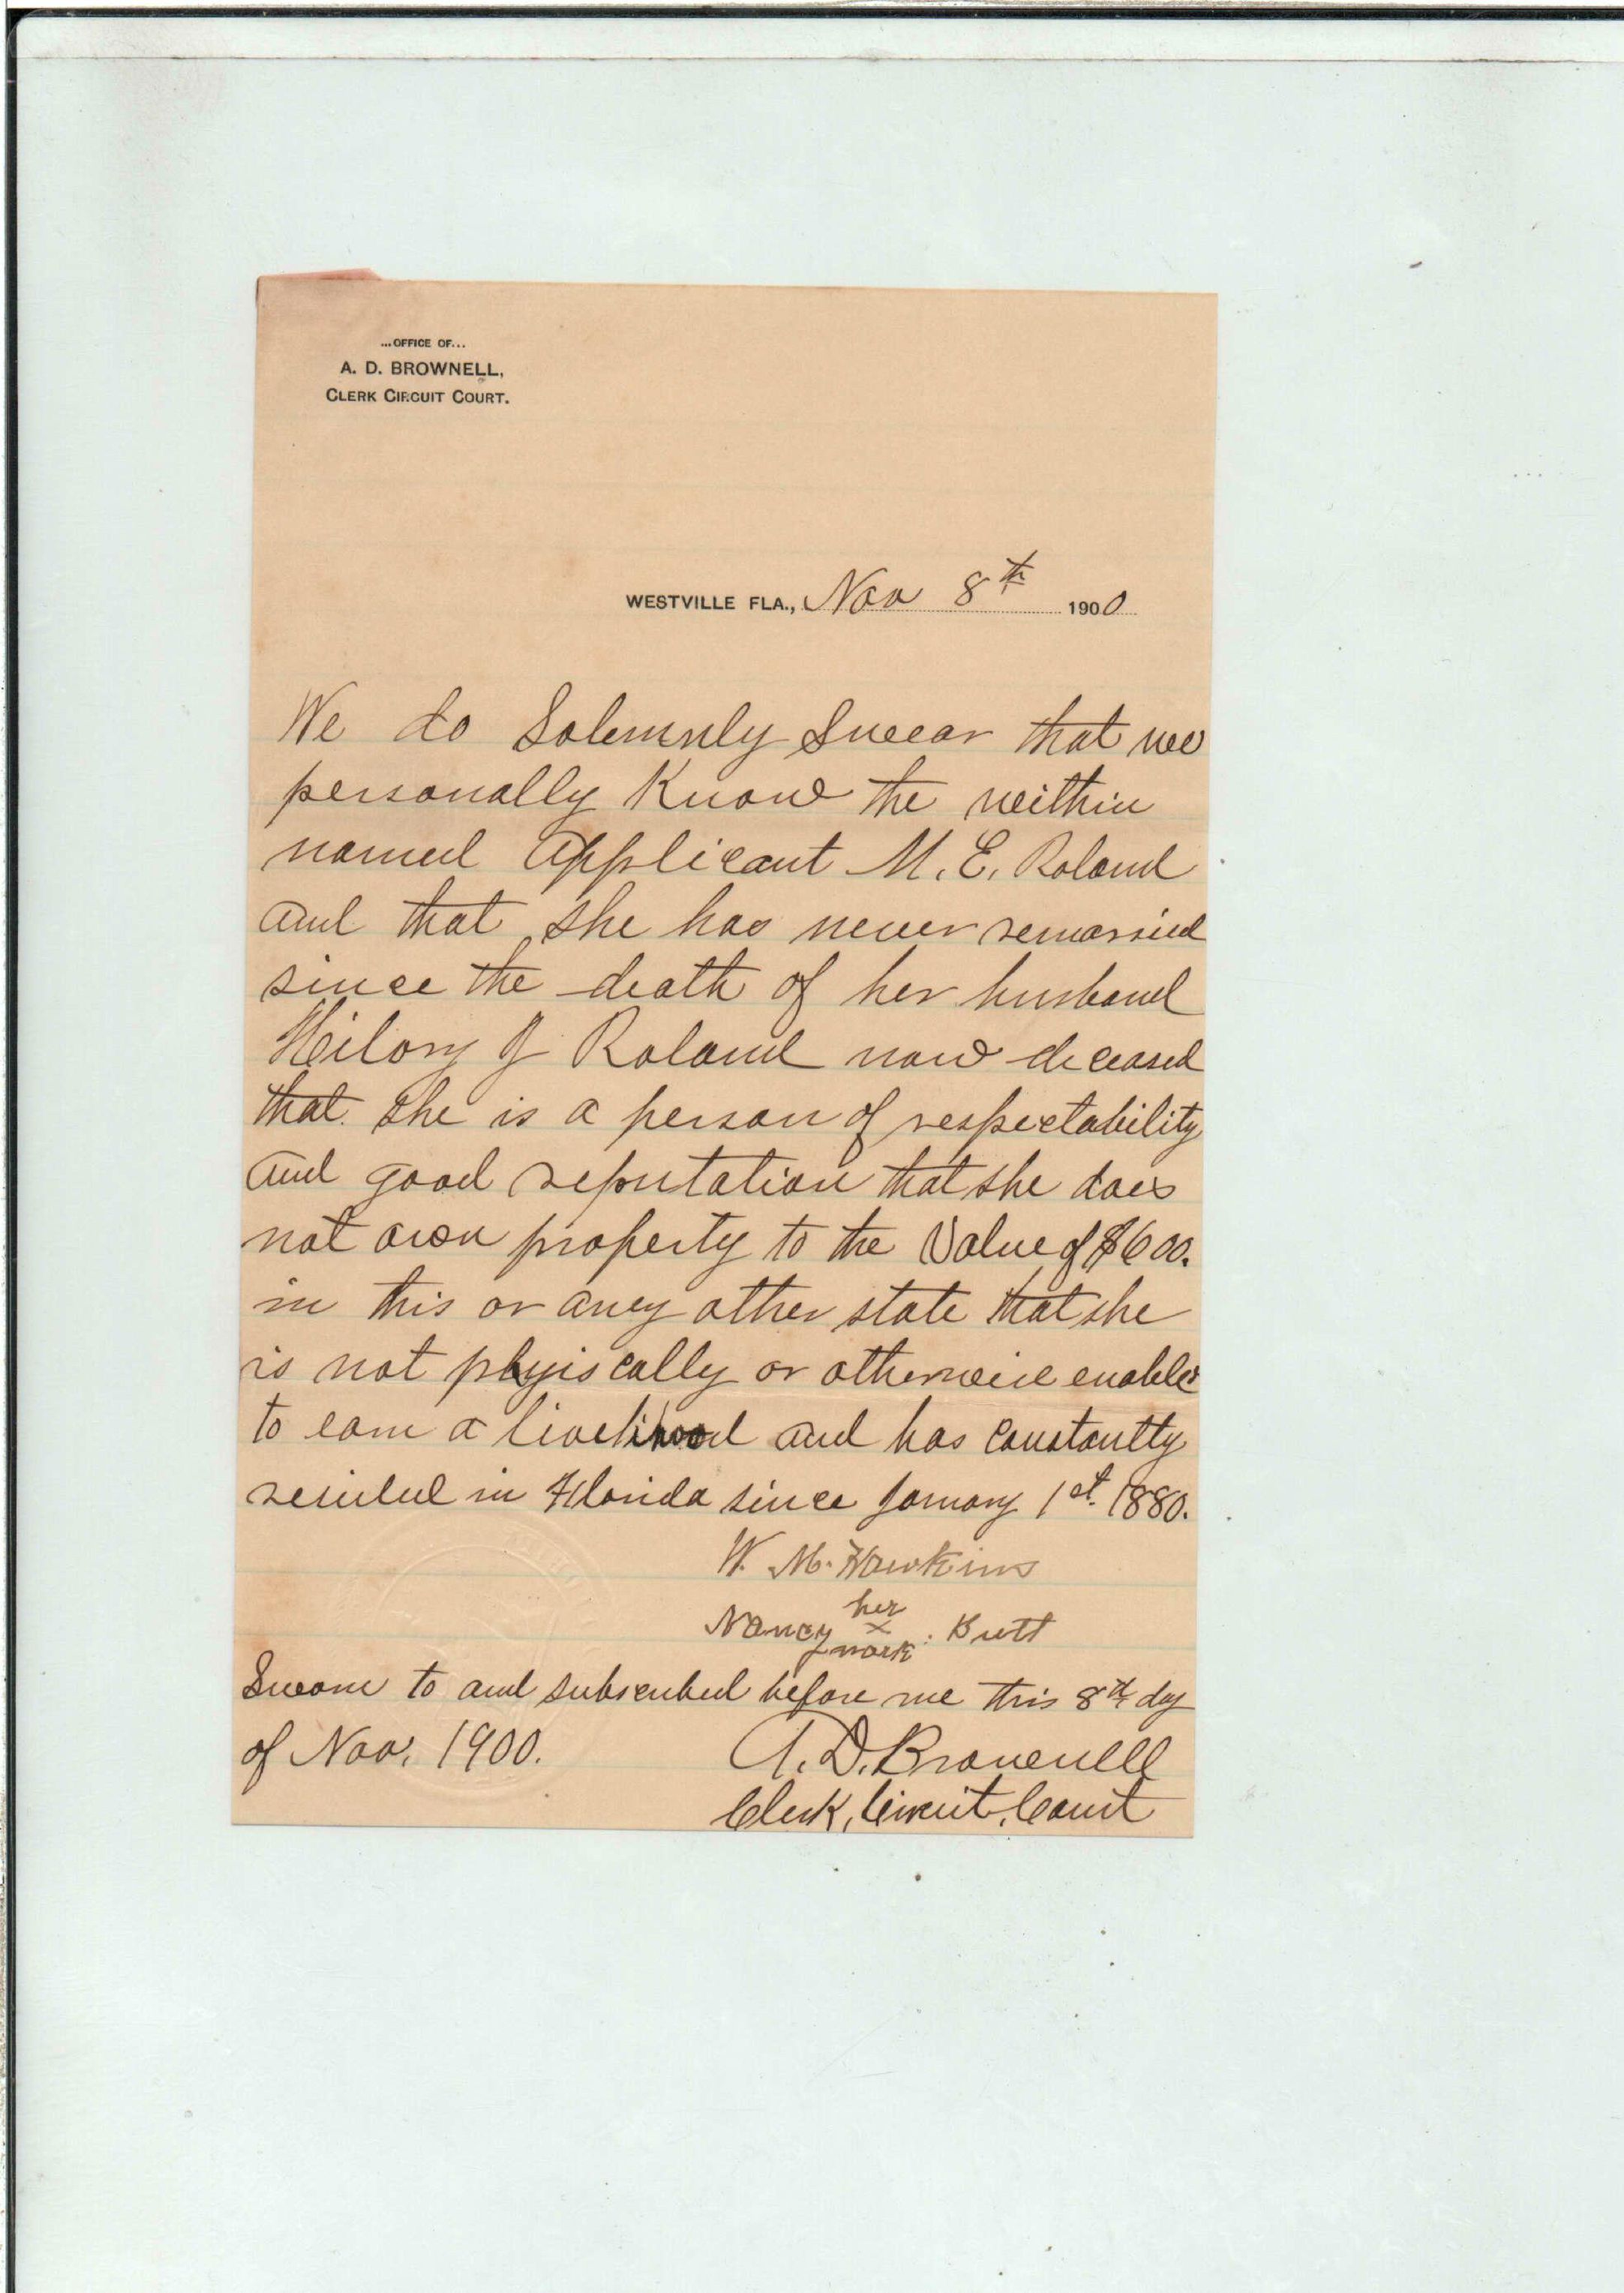 ...OFFICE OF...
A. D. BROWNELL,
CLERK CIRCUIT COURT.
WESTVILLE FLA., Nov 8th 1900
We do Solemnly Swear that we
personally Know the within
named Applicant M. E. Roland
and that she has never remarried
since the death of her husband
Hilory J Roland now deceased
that she is a person of respectability
and good reputation that she does
not own property to the Value of $600.
in this or any other state that she
is not phyiscally or otherwise enable
to earn a livelihood and has constantly
resided in Florida since January 1st. 1880.
W. M. Hawkins
her
Nancy x Butt
mark
Sworn to and subscribed before me this 8th day
of Nov. 1900. A. D. Brownell
Clerk, Circuit, Court